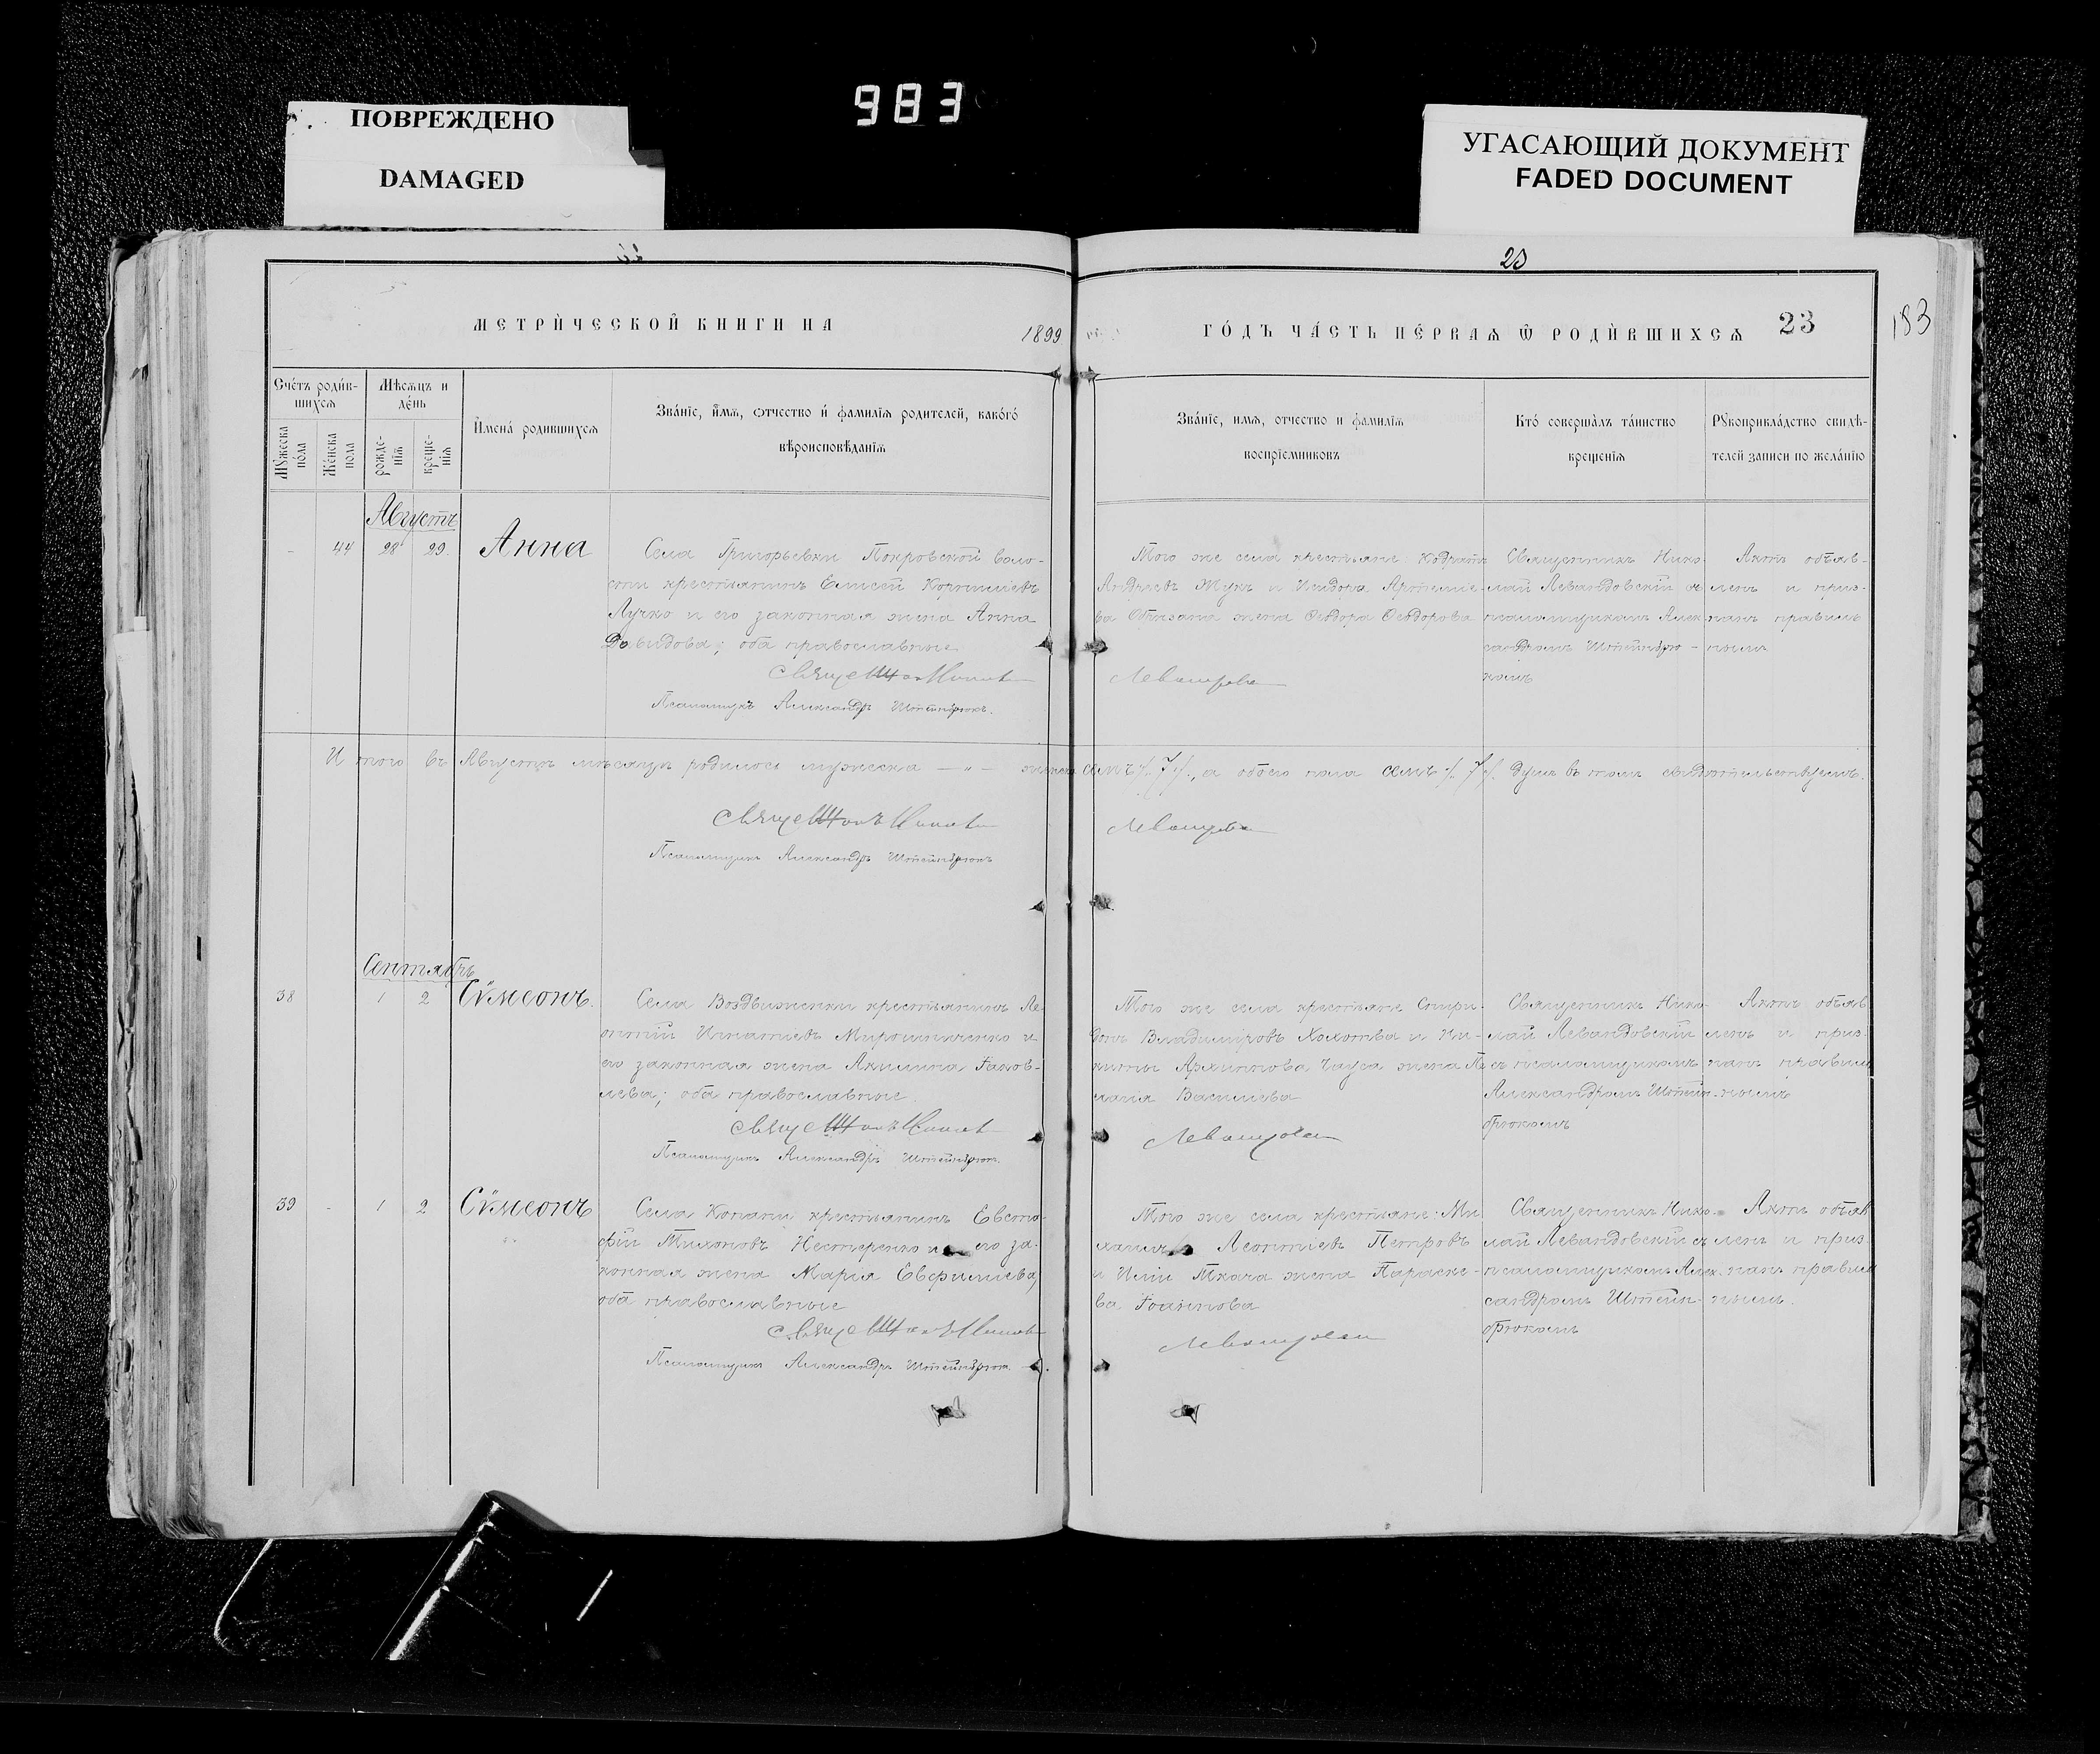 983
ПОВРЕЖДЕНО
DAMAGED
УГАСАЮЩИЙ ДОКУМЕНТ
FADED DOCUMENT
23
183
МЕТРИ́ЧЕСКОЙ КНИГИ НА 1899 ГО́ДЪ ЧА́СТЬ ПЕ́РВАѦ Ѿ РОДИ́ВШИХСѦ 23
Сче́тъ роди́в-
шихсѧ
Мѣсѧцъ и
де́нь
Мꙋжеска
по́ла
Же́нска
пола
рожде-
нїѧ
креще-
нїѧ
И҆мена́ родившихсѧ
Зва́нїе, и҆́мѧ, ѻтчество и҆ фамилїѧ родителей, како́гѡ
вѣроисповѣданїѧ
Зва́нїе, имѧ, отчество и фамилїѧ
воспрїемниковъ
Кто́ соверша́лъ та́инство
крещенїѧ
Рꙋкоприкла́дство свидѣ-
телей записи по жела́нїю
Августъ
44 28 29 Анна
Села Григорьевки Покровской воло-
сти крестьянинъ Елисей Корнилiевъ
Лучко и его законная жена Анна
Давидова; оба православные
Псаломщикъ Александръ Штейнбрюкъ.
Того же села крестьяне: Кодратъ
Андреевъ Жукъ и Исидора Артемiе-
ва жена Ѳеодора Ѳеодорова
Священникъ Нико-
лай Левандовскiй съ
псаломщикомъ Алек-
сандромъ Штейнбрю-
комъ
Актъ объяв-
ленъ и приз-
нанъ правиль-
нымъ
Итого въ Августѣ мѣсяцѣ родилось мужеска — „ — женска семъ /. 7 /., а обоего пола семъ /. 7 /. душъ въ томъ свидѣтельствуемъ.
Псаломщикъ Александръ Штейнбрюкъ
Сентябрь
38 1 2 Сѵмеонъ.
Села Воздвиженки крестьянинъ Ле-
онтiй Игнатiевъ Мирошниченко и
его законная жена Акилина Iаков-
лева; оба православные
Псаломщикъ Александръ Штейнбрюкъ.
Того же села крестьяне Спири-
донъ Владимiровъ Хохотва и Ни-
киты Архиппова жена Пе-
лагiя Василiева
Священникъ Нико-
лай Левандовскiй
съ псаломщикомъ
Александромъ Штейн-
брюкомъ
Актъ объяв
ленъ и приз-
нанъ правиль
нымъ
39 - 1 2 Сѵмеонъ
Села Копани крестьянинъ Евста-
фiй Тихоновъ Нестеренко и его за-
конная жена Марiя Евфимiева,
оба православные
Псаломщикъ Александръ Штейнбрюкъ.
Того же села крестьяне: Ми
хаилъ Леонтiевъ Петровъ
и Илiи Ткача жена Параске-
ва Iоаннова
Священникъ Нико-
лай Левандовскiй съ
псаломщикомъ Алек-
сандромъ Штейн-
брюкомъ
Актъ объяв
ленъ и приз-
нанъ правиль
нымъ.